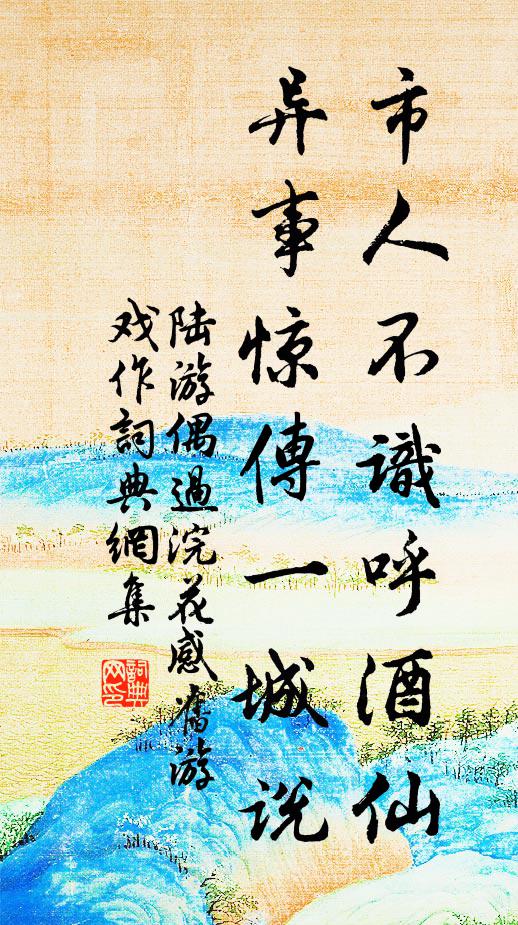 市人不識呼酒仙
异事惊傳一城说
陆游偶過浣花感舊游
戏作詞典網集
詞典
网印